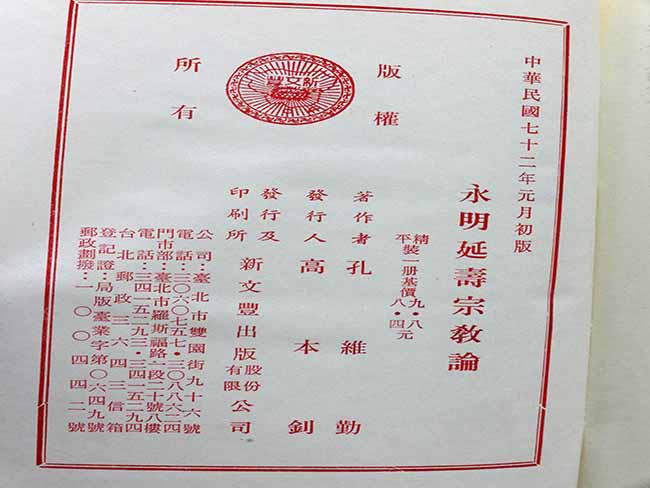 中華民國七十二年元月初版
永明延壽宗教論
精平裝一册基價九·八八·四元
版權
所有
新文豐
著作者 孔維勤
發行人 高本釗
發行及印刷所 新文豐出版股份有限公司
公司：臺北市雙園街九十六號
電話：三〇六〇七五七·三〇八八六二四
門市部：臺北市羅斯福路一段二十號八樓
電話：三四一五二九三·三四一五二九四
台北郵政三六四三信箱
登記證：局版臺業字第〇六四九號
郵政劃撥：一〇〇四四二號